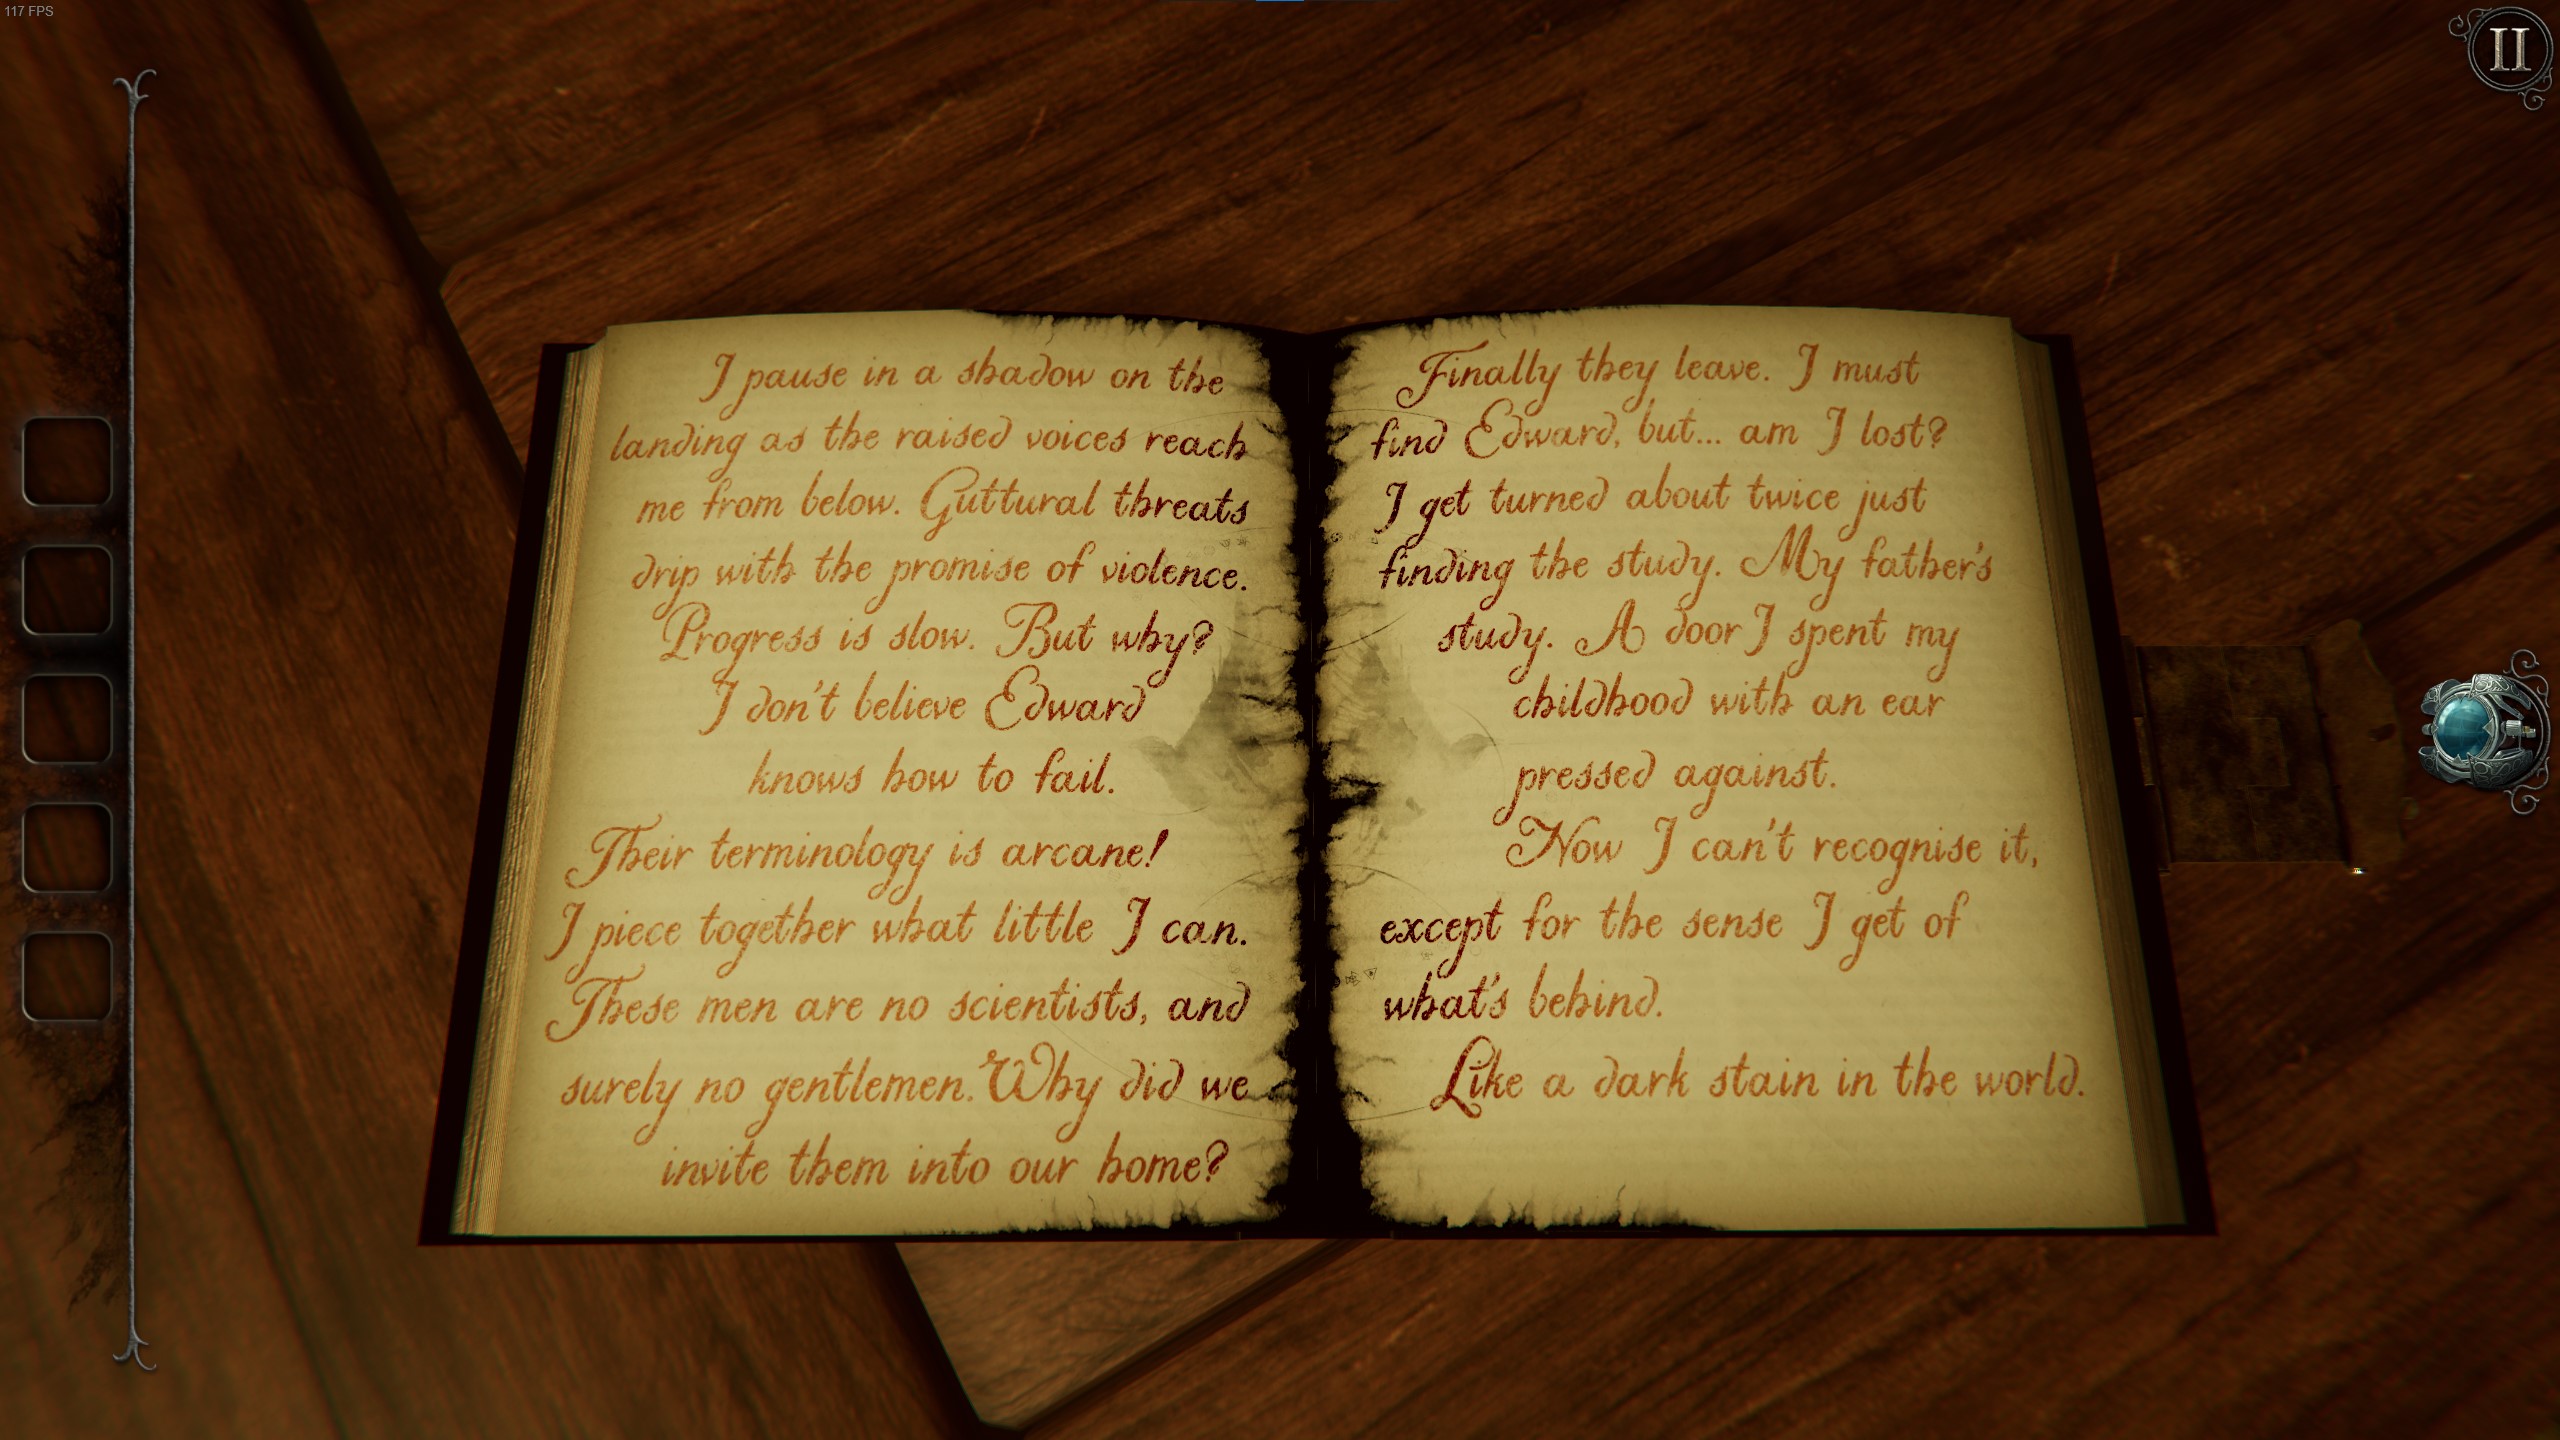 117 FPS
II
I pause in a shadow on the
landing as the raised voices reach
me from below. Guttural threats
drip with the promise of violence.
Progress is slow. But why?
I don't believe Edward
knows how to fail.
Their terminology is arcane!
I piece together what little I can.
These men are no scientists, and
surely no gentlemen. Why did we
invite them into our home?
Finally they leave. I must
find Edward, but... am I lost?
I get turned about twice just
finding the study. My father's
study. A door I spent my
childhood with an ear
pressed against.
Now I can't recognise it,
except for the sense I get of
what's behind.
Like a dark stain in the world.